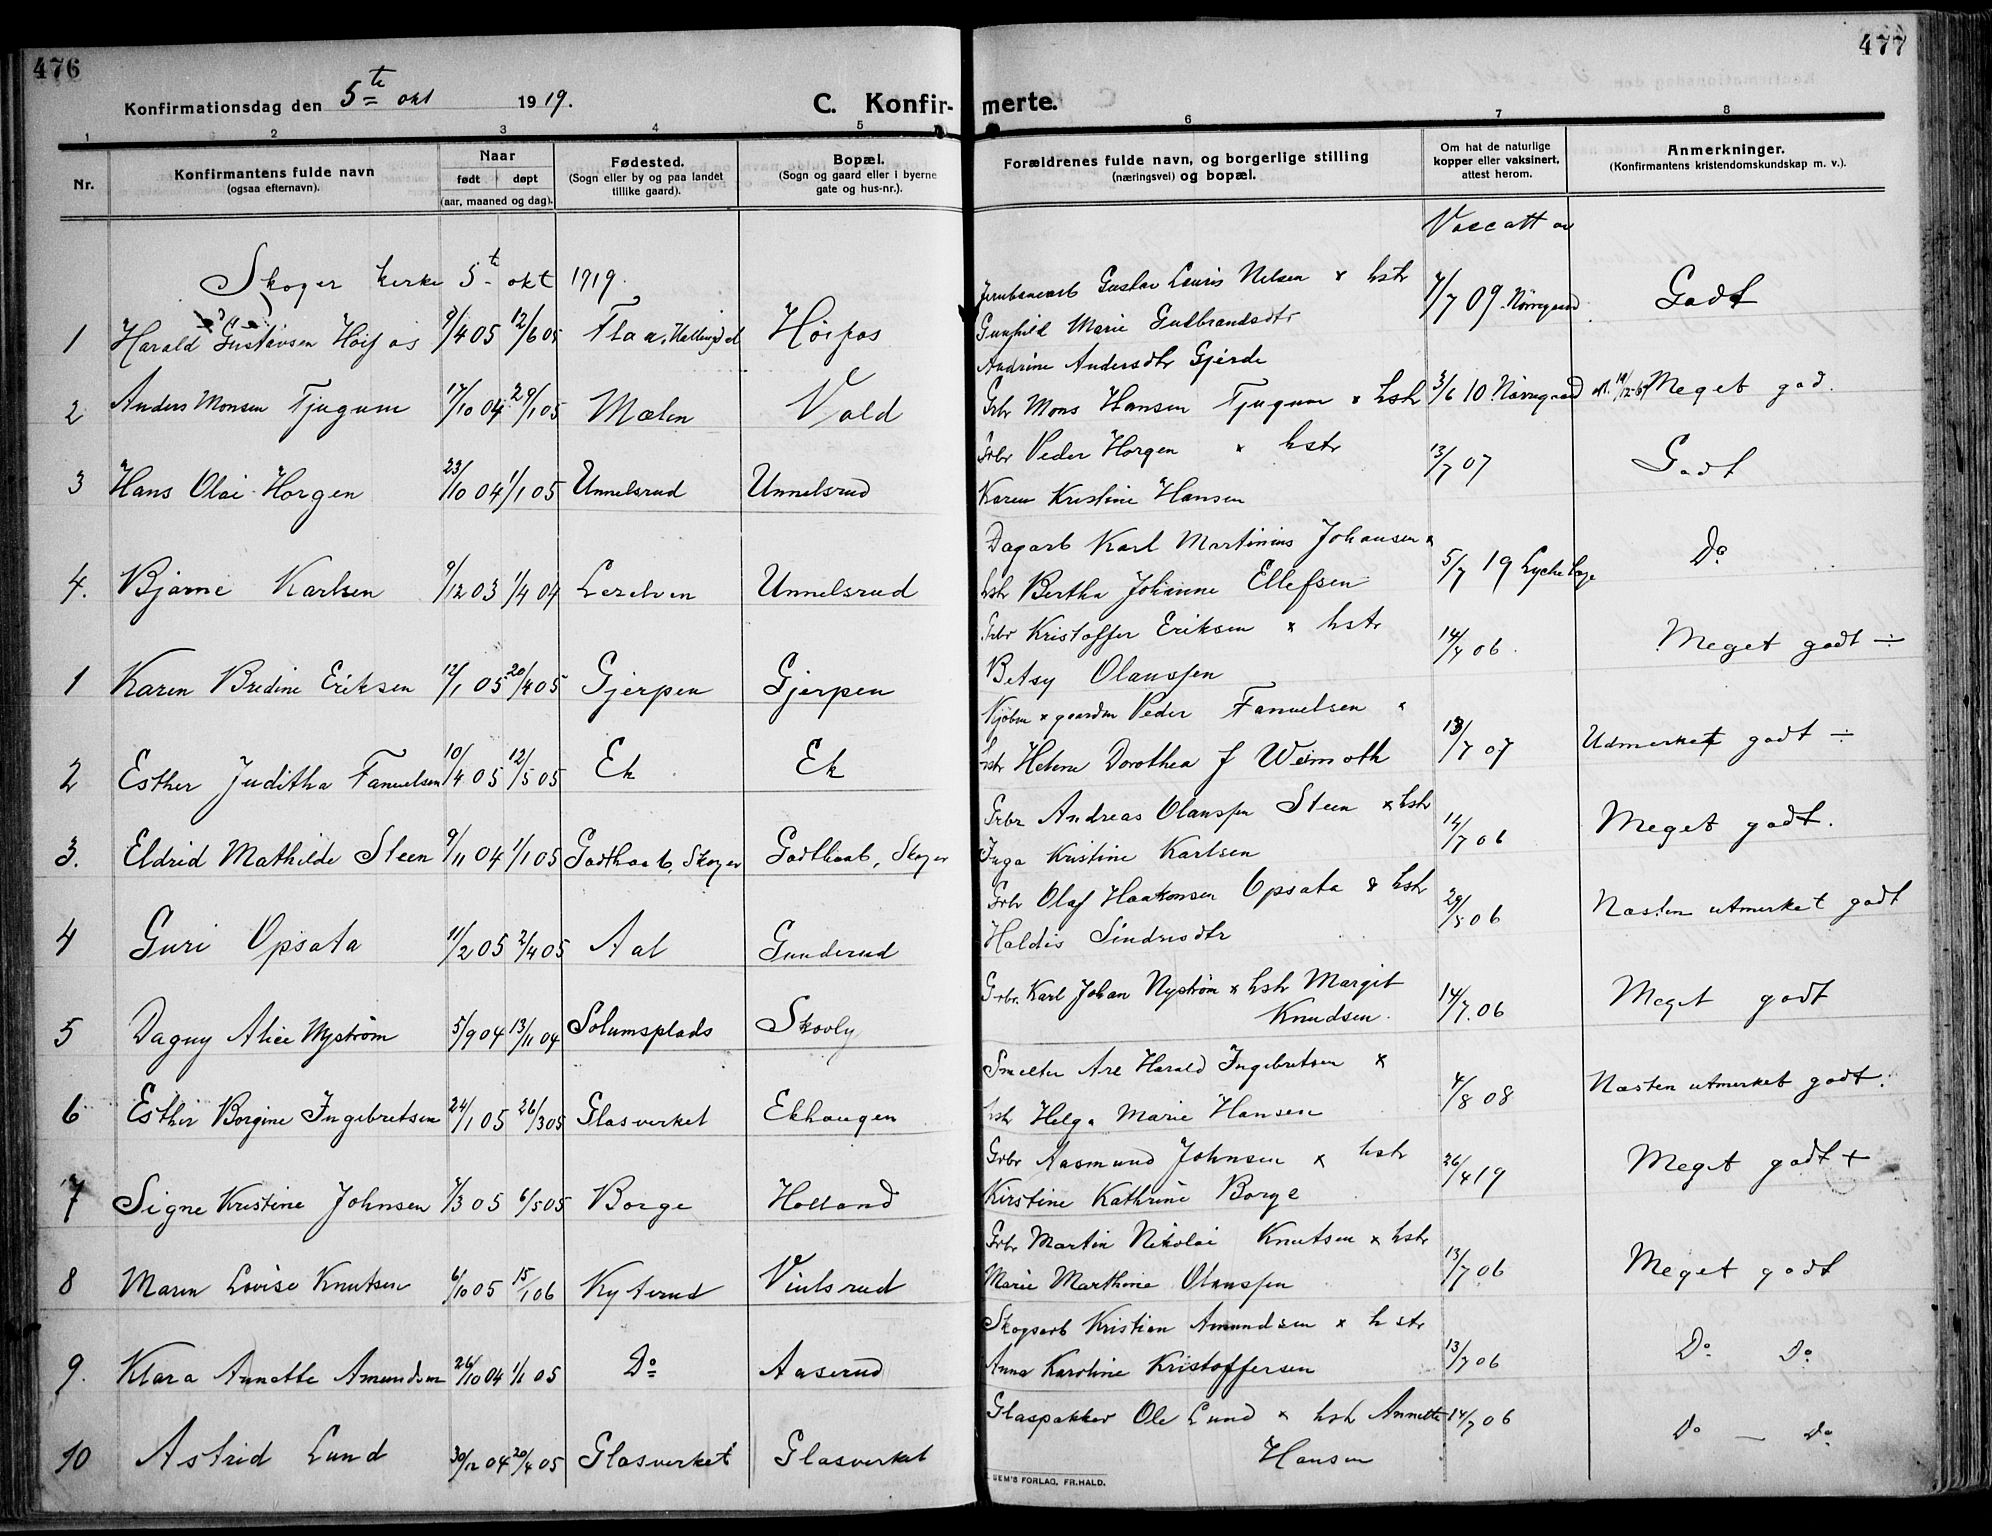 476
477
Konfirmationsdag den 5te okt 1919.
C. Konfirmerte.
1 2 3 4 5 6 7 8
Nr.
Konfirmantens fulde navn
(ogsaa efternavn).
Naar
født døpt
(aar, maaned og dag).
Fødested.
(Sogn eller by og paa landet
tillike gaard).
Bopæl.
(Sogn og gaard eller i byerne
gate og hus-nr.).
Forældrenes fulde navn, og borgerlige stilling
(næringsvei) og bopæl.
Om hat de naturlige
kopper eller vaksinert,
attest herom.
Anmerkninger.
(Konfirmantens kristendomskundskap m. v.).
Skoger kirke 5te okt 1919.
1 Harald Gustavsen Høifos 9/4 05 12/6 05 Flaa, Hallingdal Høifos
Gustav Lauris Nilsen x hstr
Gunhild Marie Gudbrandsdtr
7/7 09 Nørregaard Godt
2 Anders Monsen Tjugum 17/10 04 29/1 05 Mælen Vold
Andrine Andersdtr Gjerde
Grbr Mons Hansen Tjugum x hstr
3/6 10 Nørregaard Meget god.
3 Hans Olai Horgen 23/10 04 1/1 05 Unnelsrud Unnelsrud
Grbr Peder Horgen x hstr
Karen Kristine Hansen
13/7 07 Godt
4. Bjarne Karlsen 9/12 03 1/4 04 Lerelven Unnelsrud
Dagarb Karl Martinius Johansen x
hstr Bertha Johanne Ellefsen
5/7 19 Do
1 Karen Bredine Eriksen 12/1 05 20/4 05 Gjerpen Gjerpen
Grbr Kristoffer Eriksen x hstr
Betsy Olaussen
14/7 06. Meget godt ÷
2 Esther Juditha Fanuelsen 10/4 05 12/5 05 Ek Ek
Kjøbm x gaardm Peder Fanuelsen x
hstr Helene Dorothea f Weimoth
13/7 07 Udmerket godt ÷
3. Eldrid Mathilde Steen 9/11 04 1/1 05 Godthaab, Skoger Godthaab, Skoger
Grbr Andreas Olaussen Steen x hstr
Inga Kristine Karlsen
12/7 06 Meget godt.
4 Guri Opsata 11/2 05 2/4 05 Aal Gunderud
Grbr Olaf Haakonsen Opsata & hstr
Haldis Sindresdtr
29/5 06 Næsten utmerket godt
5 Dagny Alice Nystrøm 5/9 04 13/11 04 Solumsplads Skovly
Grbr. Karl Johan Nystrøm x hstr Margit
Knudsen.
14/7. 06 Meget godt
6 Esther Borgine Ingebretsen 24/1 05 26/3 05 Glasverket Ekhaugen
Smelter Arl Harald Ingebretsen x
hstr Helga Marie Hansen
4/8 08 Næsten utmerket godt.
7 Signe Kristine Johnsen 7/3 05 6/5 05 Borge Holland
Grbr Aasmund Johnsen x hstr
Kirstine Kathrine Borge
26/4 19 Meget godt +
8 Maren Lovise Knutsen 6/10 05 15/1 06 Kyterud Vinlsrud
Grbr Martin Nikolai Knutsen x hstr
Marie Marthine Olaussen
13/7 06 Meget godt
9. Klara Annette Amundsen 26/10 04 1/1 05 Do Aaserud
Skogsarb Kristian Amundsen x hstr
Anna Karoline Kristoffersen
13/7 06 Do Do
10 Astrid Lund 30/12 04 20/4 05 Glasverket Glasverket
Glaspakker Ole Lund x hstr Annette
Hansen
14/7 06 Do — Do
SEM'S FORLAG, FR.HALD.